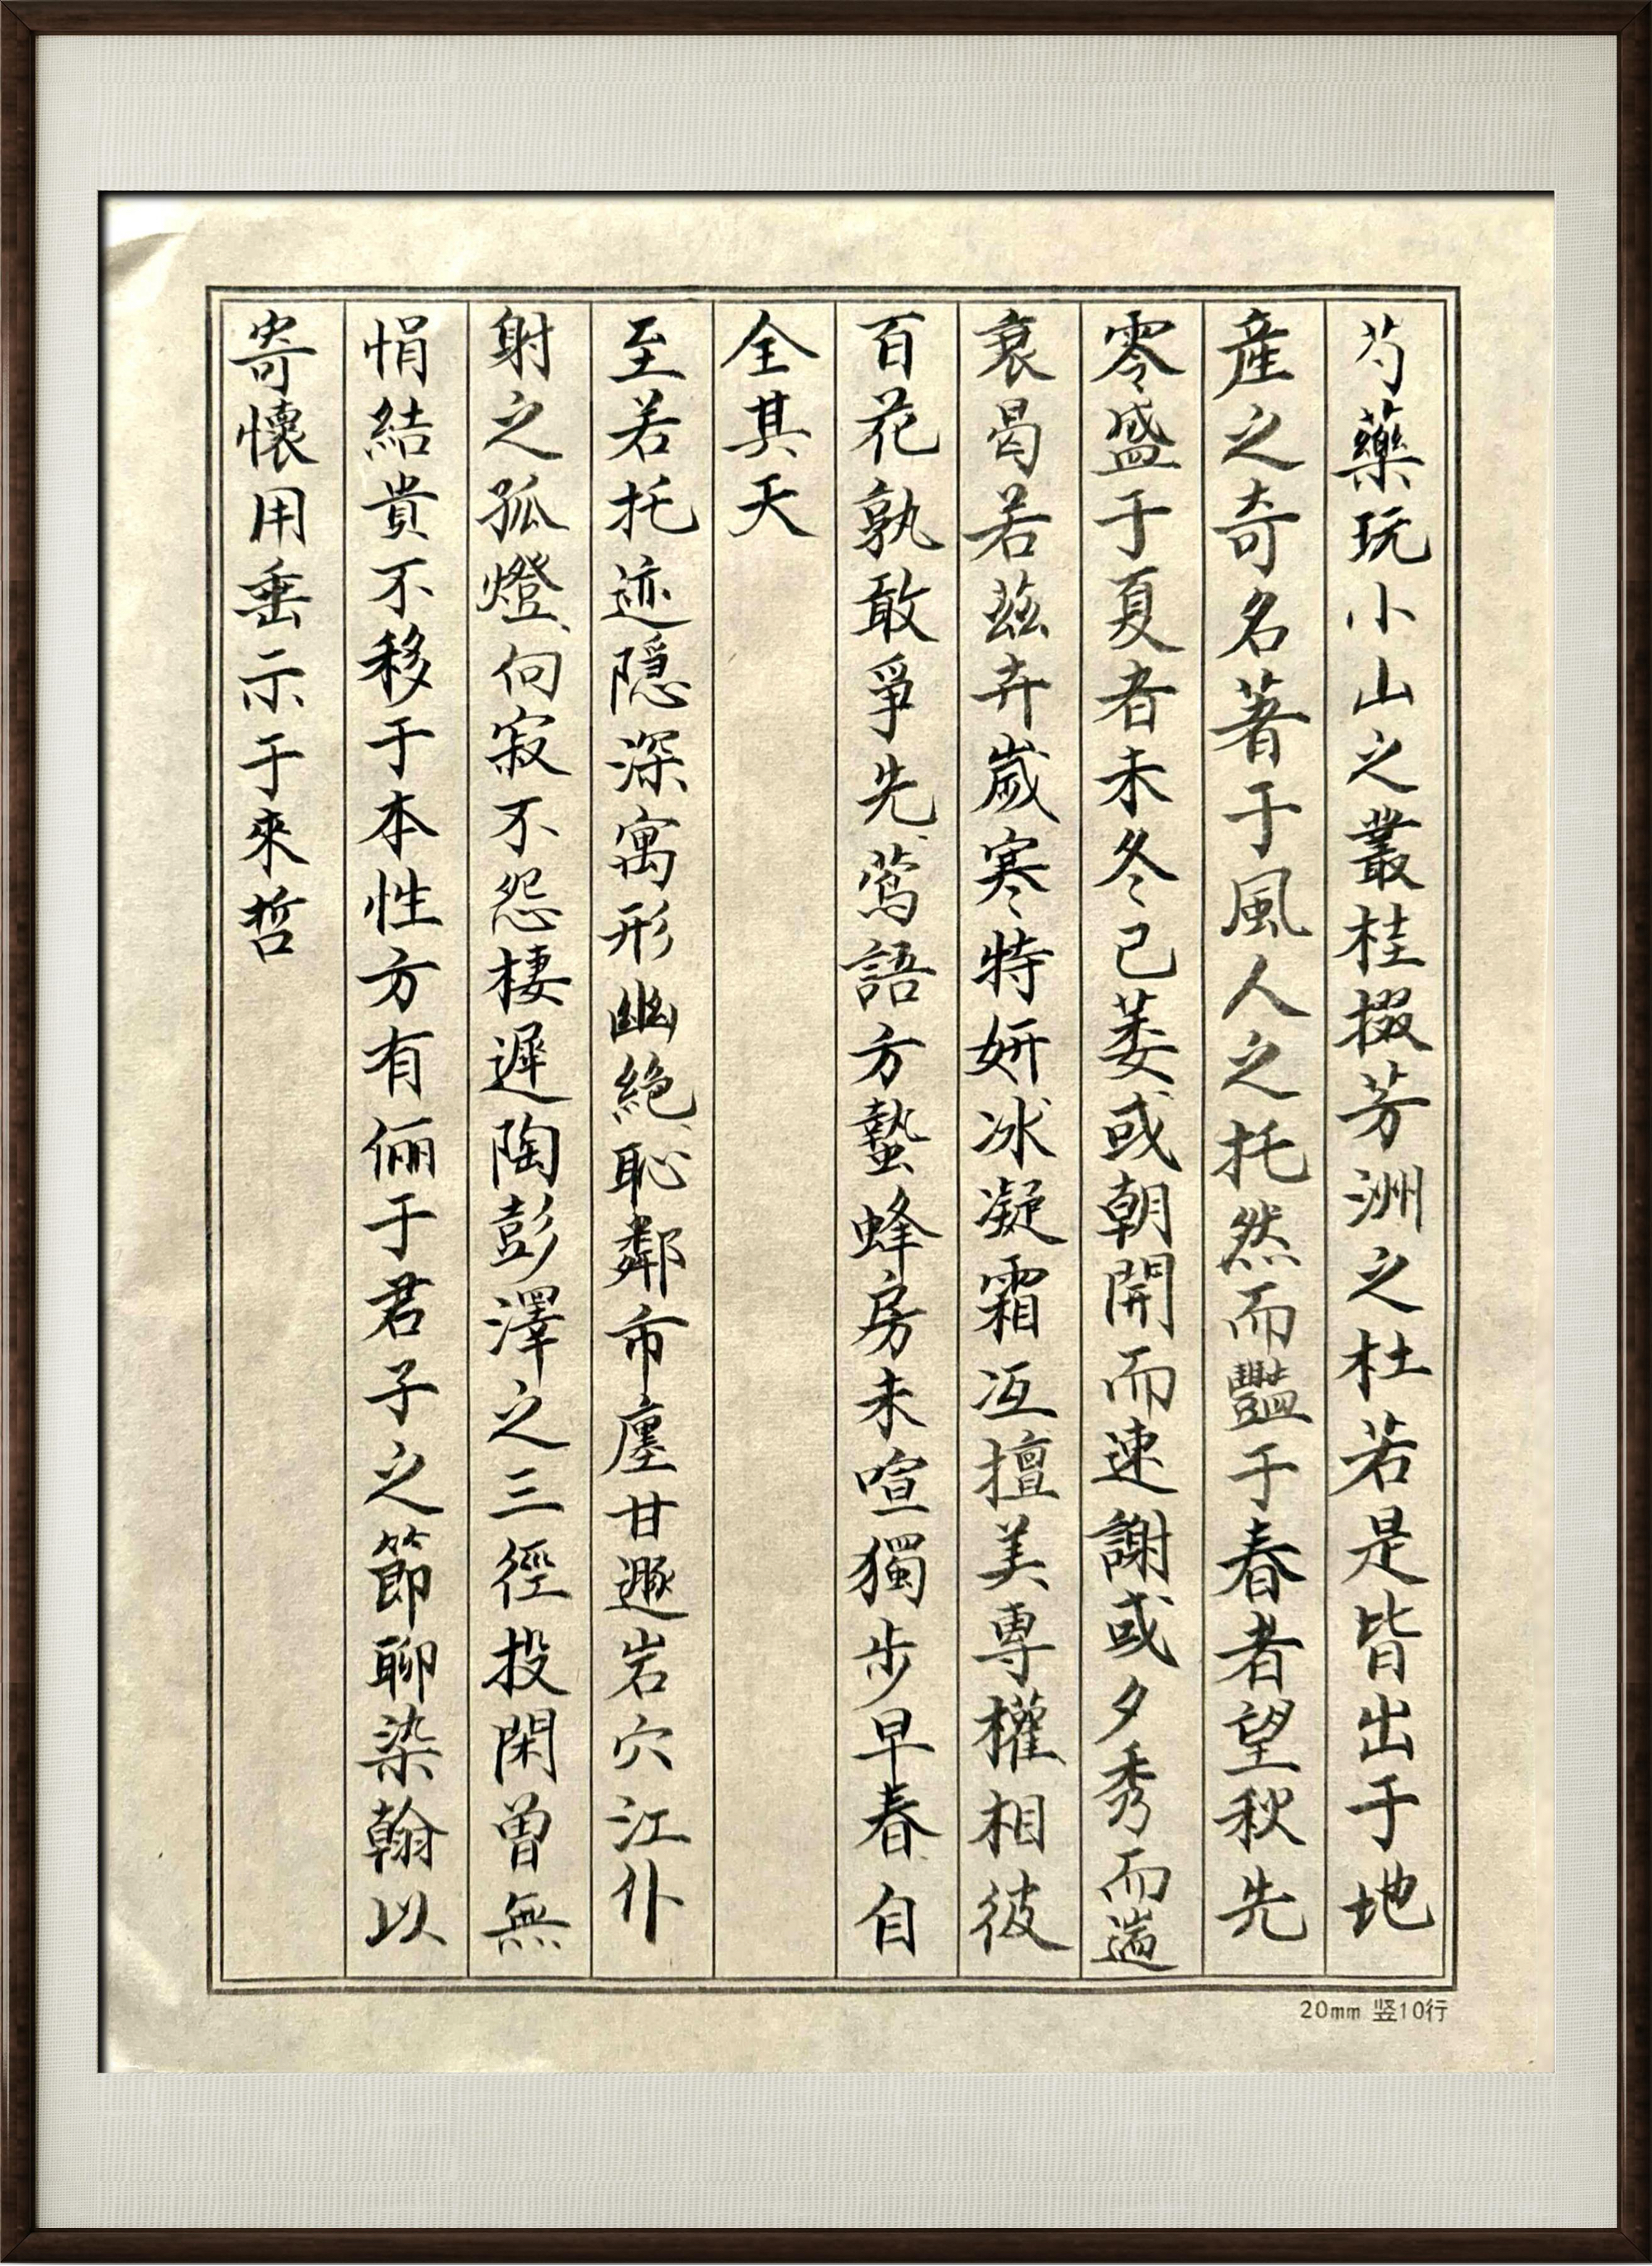 芍藥玩小山之叢桂掇芳洲之杜若是皆出于地
產之奇名著于風人之托然而豔于春者望秋先
零盛于夏者未冬已萎或朝開而速謝或夕秀而遄
衰曷若茲卉歲寒特妍冰凝霜冱擅美專權相彼
百花孰敢爭先鶯語方蟄蜂房未喧獨步早春自
全其天
至若托迹隱深寓形幽絕恥鄰市廛甘遯岩穴江仆
射之孤燈向寂不怨棲遲陶彭澤之三徑投閑曾無
悁結貴不移于本性方有儷于君子之節聊染翰以
寄懷用垂示于來哲
20mm 竖10行